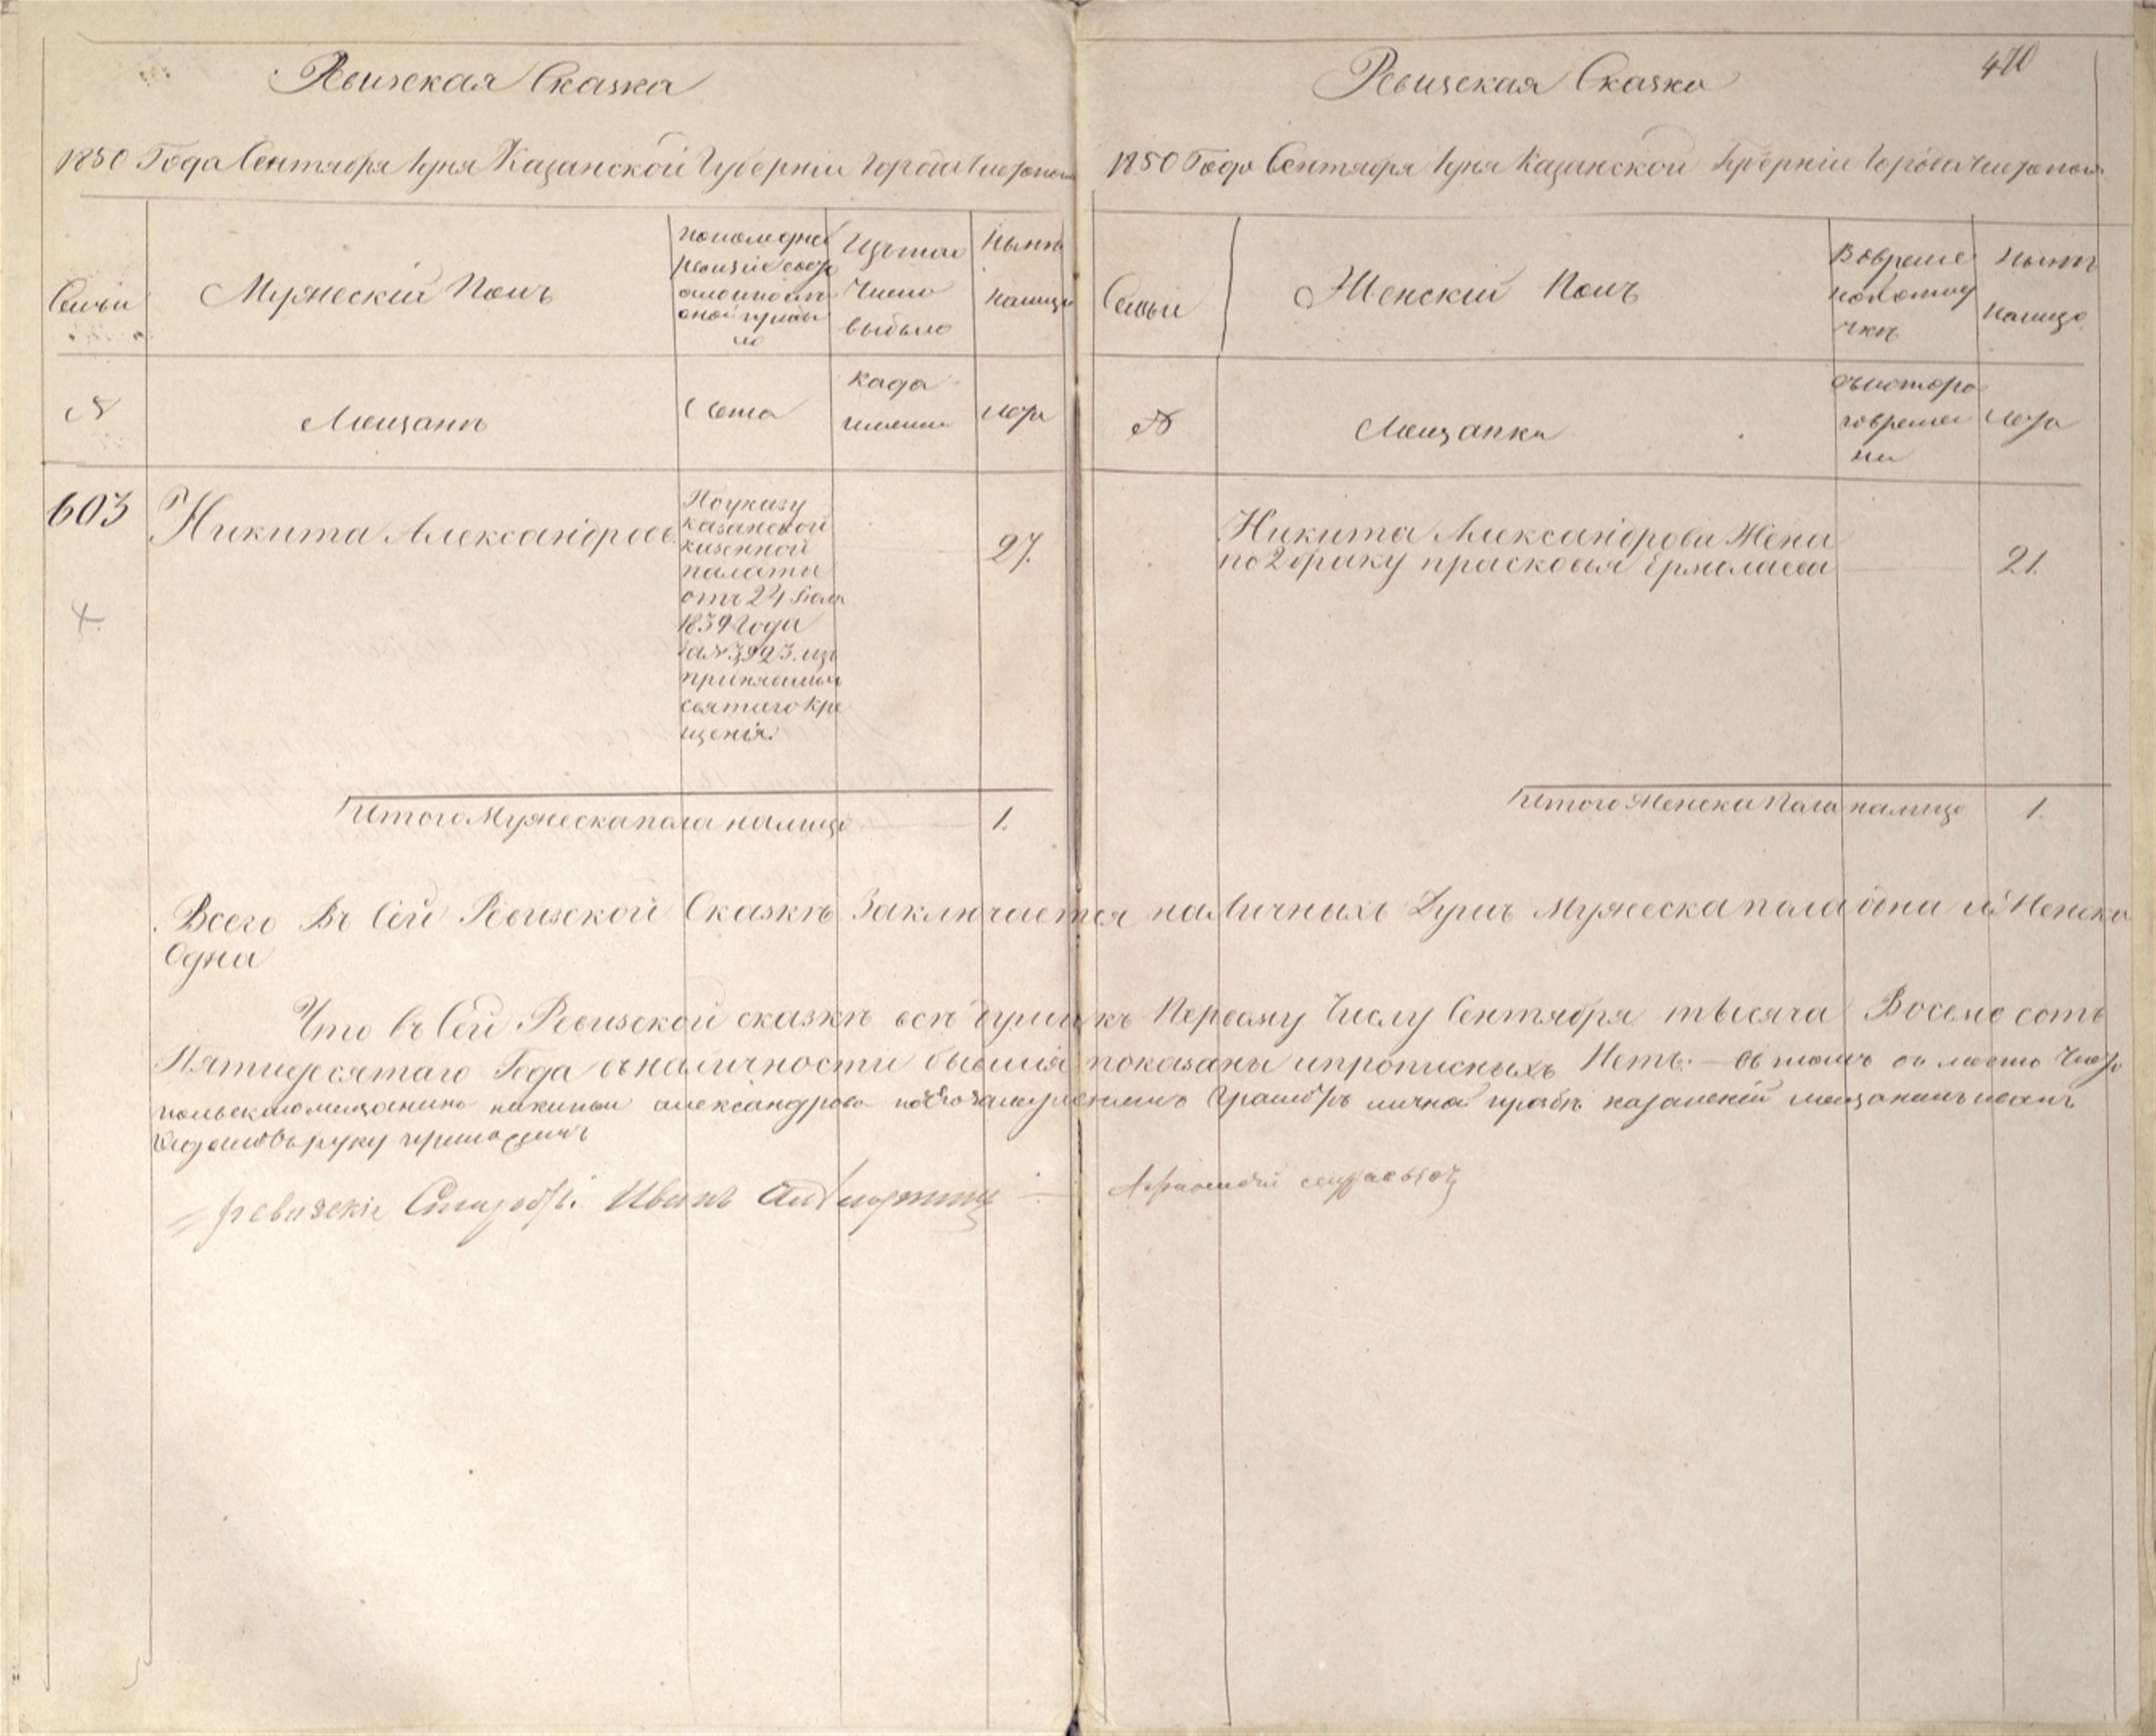 Ревизская Сказка
1850 Года Сентября 1 дня Казанской Губернии Города Чистополя
Семьи
Мужескій Полъ
Изътого
Число
выбыло
Ныне
налицо
№
Мещане
Лета
Лета
603
Никита Александровъ
По указу
казанской
казенной
палаты
отъ 24 Июля
1839 Года
за № 3923. изъ
принявшихъ
святаго Кре
щенія.
27.
Итого Мужеска пола налицо
1.
470
Ревизская Сказка
1850 Года Сентября 1 дня Казанской Губерніи Города Чистополя
Семьи
Женскій Полъ
Ныне
налицо
№
Мещанка
съкоторо
говреме
ни
Лета
Никита Александрова Жена
по 2 браку прасковья Ермолаева
21.
Итого Женска Пола налицо
1.
Всего Въ Сей Ревизской Сказке Заключается наличныхъ Душъ Мужеска пола одна и Женска
Одна
Что въ Сей Ревизской сказке все души къ Первому Числу Сентября тысяча Восемь сотъ
Пятидесятаго Года въналичности бывшія показаны ипрописныхъ Нетъ. — въ томъ въ место Чисто
польскаго мещанина никиты александрова личной прозбе мещанинъ
руку приложилъ
ревизскіе Иванъ